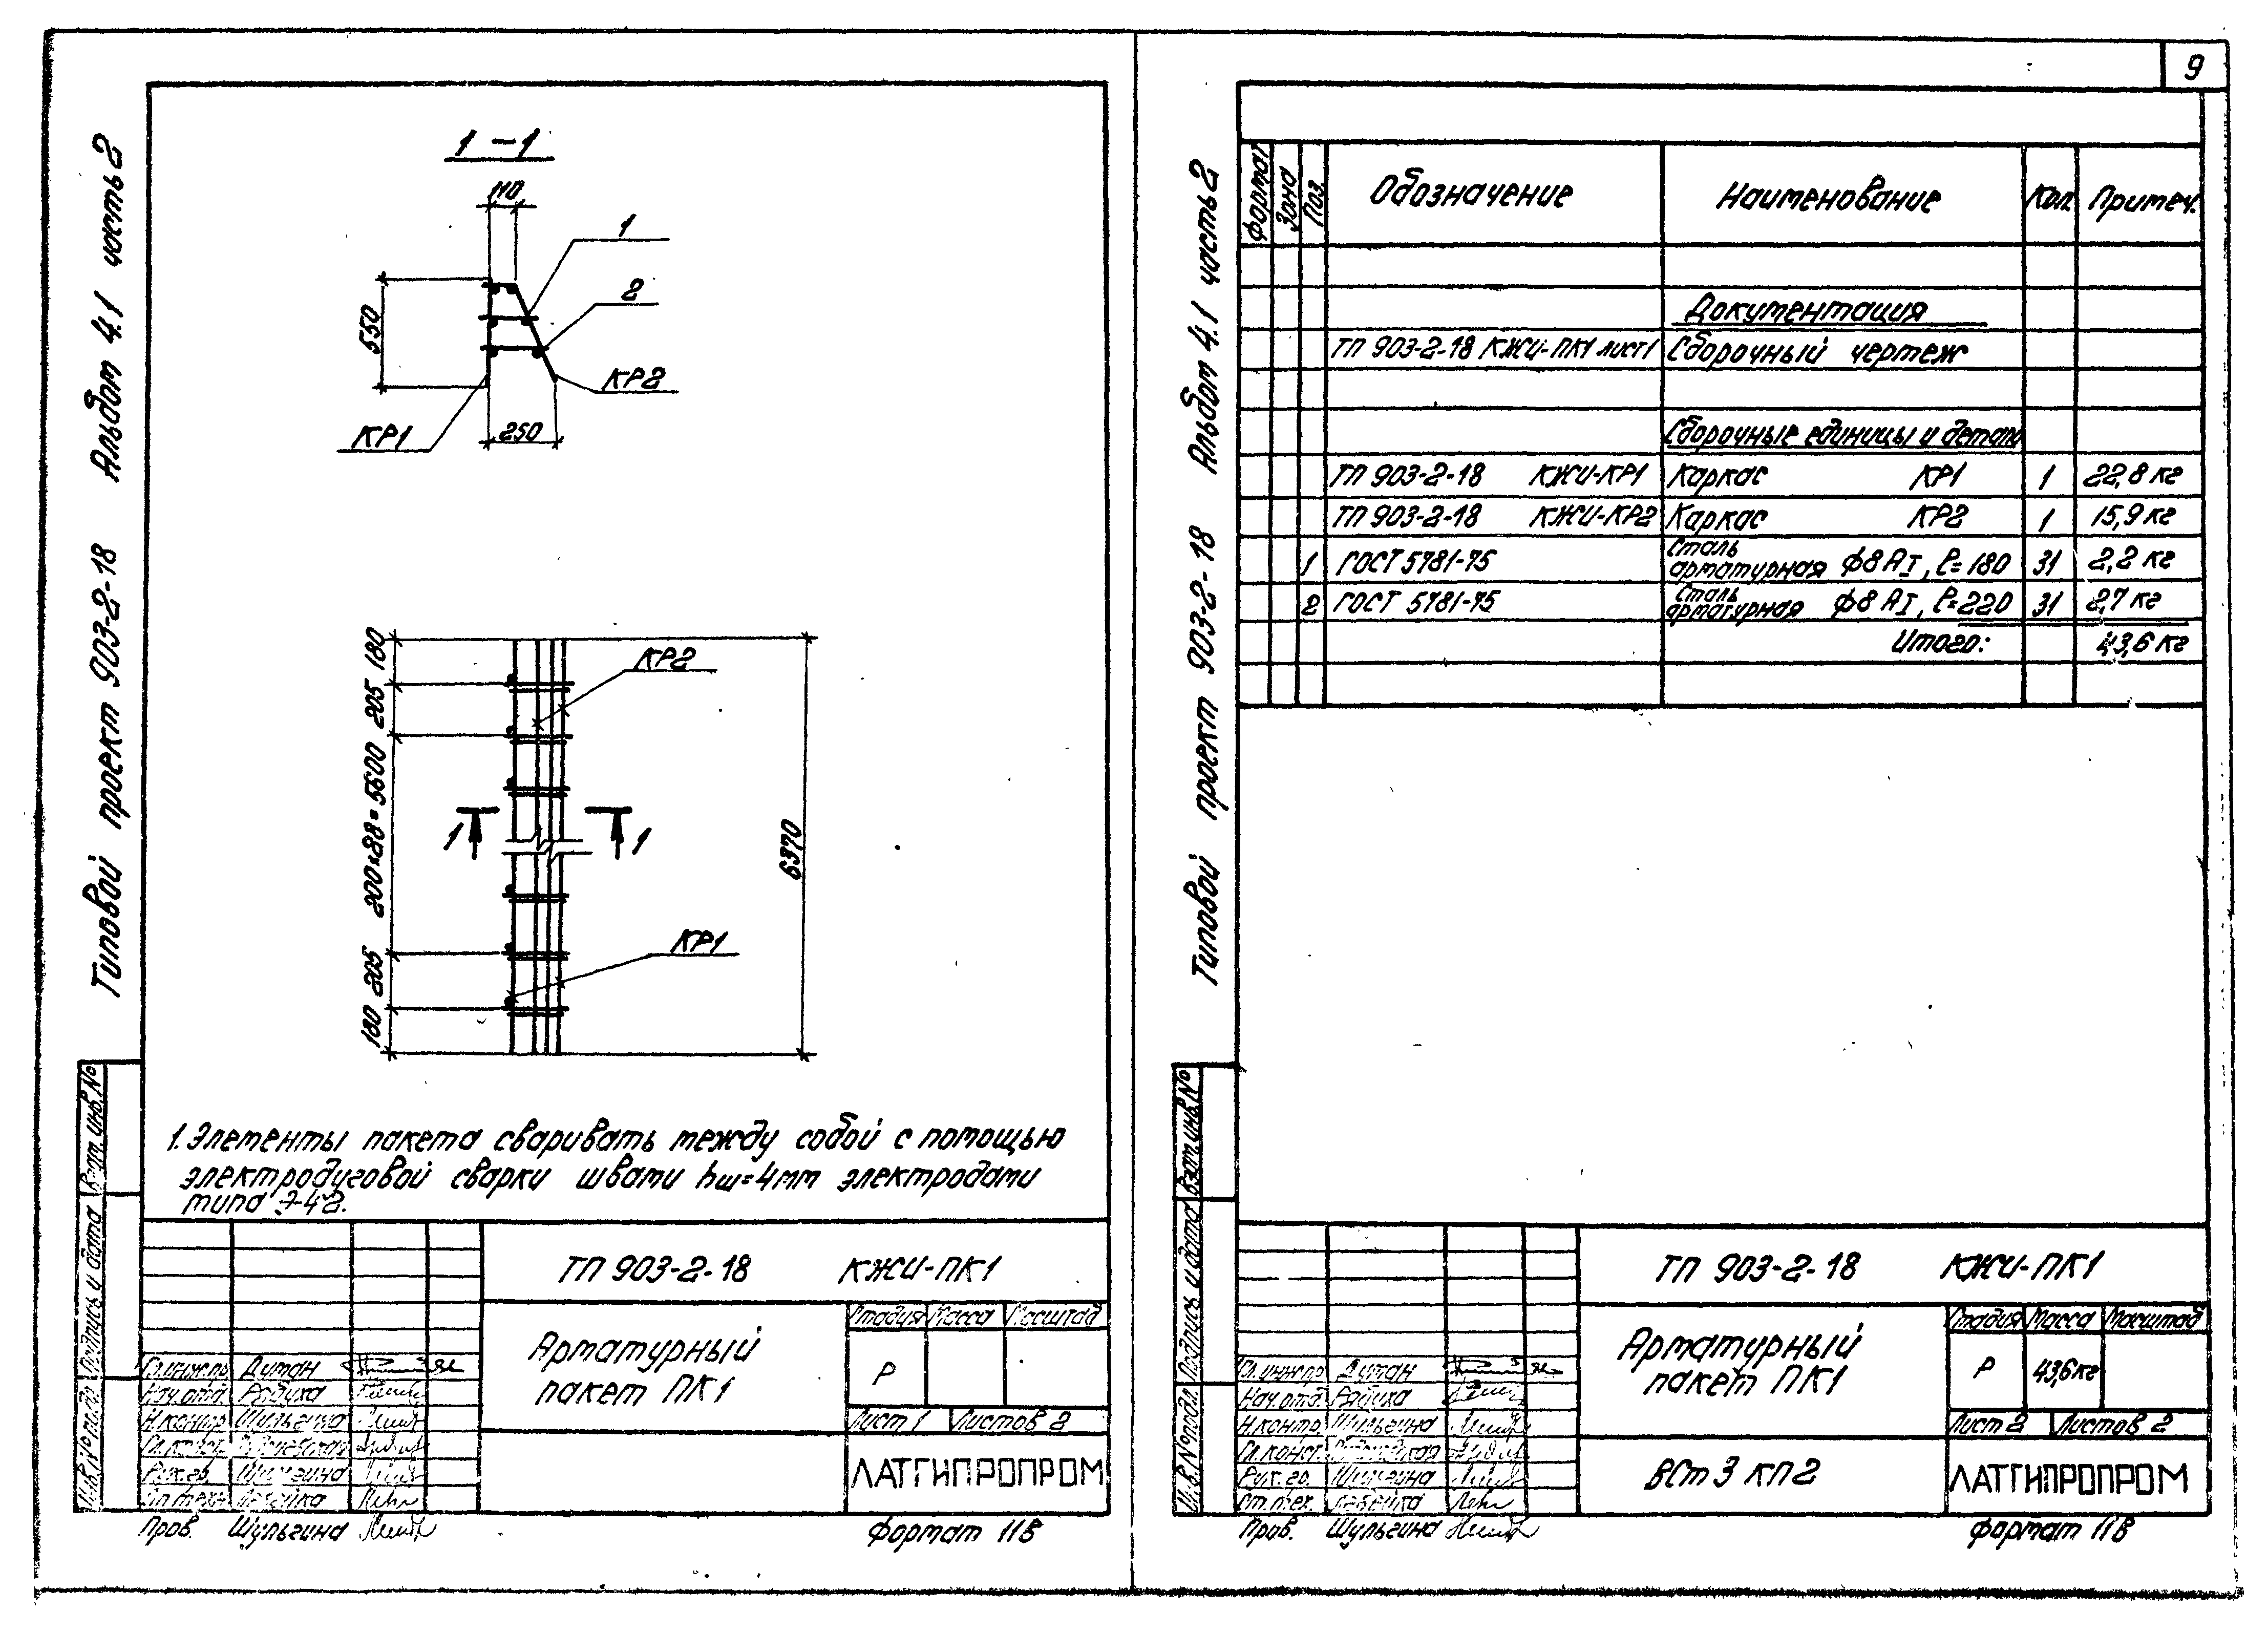 9
Типовой проект 903-2-18 Альбом 4.1 часть 2
1-1
110
1
2
550
КР2
КР1
250
180
205
200×28=5600
205
180
КР2
1 1
6370
КР1
1. Элементы пакета сваривать между собой с помощью
электродуговой сварки швами hш=4мм электродами
типа Э-42.
Взам. инв. №
Подпись и дата
Инв. № подл.
ТП 903-2-18 КЖИ-ПК1
Арматурный
пакет ПК1
Стадия Масса Масштаб
Р
Лист 1 Листов 2
ЛАТГИПРОПРОМ
Гл.инж.пр. Дитан
Нач.отд. Рябуха
Н.контр. Шульгина
Гл.конст.
Рук.гр. Шульгина
Ст.тех.
Пров. Шульгина
Формат 11В
Типовой проект 903-2-18 Альбом 4.1 часть 2
Формат Зона Поз. Обозначение Наименование Кол. Примеч.
Документация
ТП 903-2-18 КЖИ-ПК1 лист1 Сборочный чертеж
Сборочные единицы и детали
ТП 903-2-18 КЖИ-КР1 Каркас КР1 1 22,8 кг
ТП 903-2-18 КЖИ-КР2 Каркас КР2 1 15,9 кг
1 ГОСТ 5781-75 Сталь арматурная ф8 АI, ℓ=180 31 2,2 кг
2 ГОСТ 5781-75 Сталь арматурная ф8 АI, ℓ=220 31 2,7 кг
Итого: 43,6 кг
Взам. инв. №
Подпись и дата
Инв. № подл.
ТП 903-2-18 КЖИ-ПК1
Арматурный
пакет ПК1
Стадия Масса Масштаб
Р 43,6 кг
Лист 2 Листов 2
ВСт 3 кп2
ЛАТГИПРОПРОМ
Гл.инж.пр. Дитан
Нач.отд. Рябуха
Н.контр. Шульгина
Гл.конст.
Рук.гр. Шульгина
Ст.тех.
Пров. Шульгина
Формат 11В